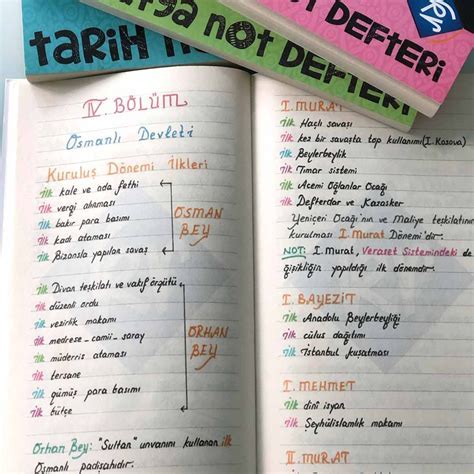 NOT DEFTERİ
TARİH
NOT DEFTERİ
IV. BÖLÜM
Osmanlı Devleti
Kuruluş Dönemi İlkleri
ilk kale ve ada fethi
ilk vergi alınması
ilk bakır para basımı
ilk kadı ataması
ilk Bizansla yapılan savaş
OSMAN
BEY
ilk Divan teşkilatı ve vakıf örgütü
ilk düzenli ordu
ilk vezirlik makamı
ilk medrese-camii-saray
ilk müderris ataması
ilk tersane
ilk gümüş para basımı
ilk bütçe
ORHAN
BEY
Orhan Bey: "Sultan" unvanını kullanan ilk
Osmanlı padişahıdır.
I. MURAT
ilk Haçlı savaşı
ilk kez bir savaşta top kullanımı (I. Kosova)
ilk Beylerbeylik
ilk Tımar sistemi
ilk Acemi Oğlanlar Ocağı
ilk Defterdar ve Kazasker
Yeniçeri Ocağı'nın ve Maliye teşkilatının
kurulması I Murat Dönemi'dir.
NOT: I. Murat, Veraset Sistemindeki de
ğişikliğin yapıldığı ilk dönemdir.
I. BAYEZİT
ilk Anadolu Beylerbeyliği
ilk cülus dağıtımı
ilk İstanbul kuşatması
I. MEHMET
ilk dinî isyan
ilk Şeyhülislamlık makamı
II. MURAT